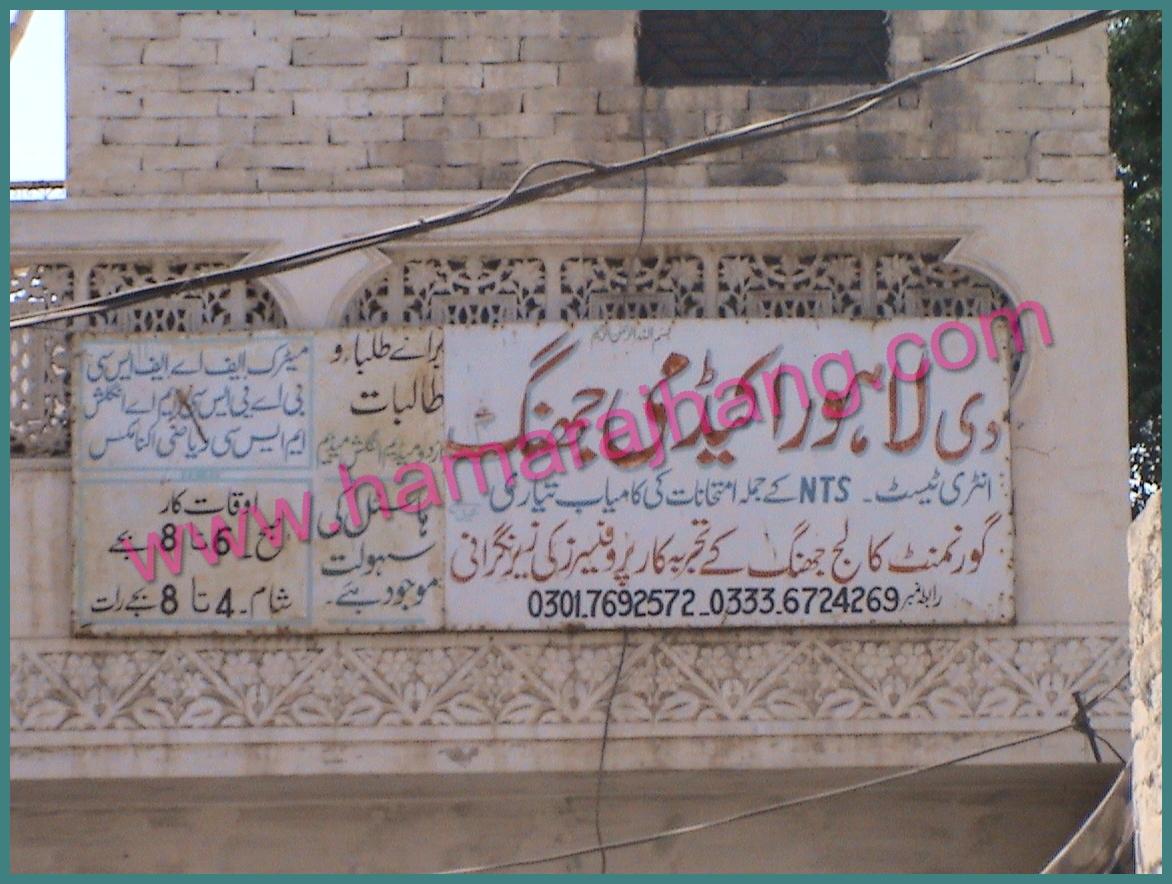 بسم اللہ الرحمن الرحیم
دی لاہور اکیڈمی جھنگ
انٹری ٹیسٹ۔ NTS کے جملہ امتحانات کی کامیاب تیاری
گورنمنٹ کالج جھنگ کے تجربہ کار پروفیسرز کی زیر نگرانی
رابطہ نمبر 0301.7692572_0333.6724269
برائے طلباء و
طالبات
اردو میڈیم انگلش میڈیم
ہاسٹل کی
سہولت
موجود ہے۔
میٹرک ایف اے ایف ایس سی
بی اے بی ایس سی ایم اے انگلش
ایم ایس سی ریاضی اکنامکس
اوقات کار
صبح 6 تا 8 بجے
شام۔ 4 تا 8 بجے رات
www.hamarajhang.com